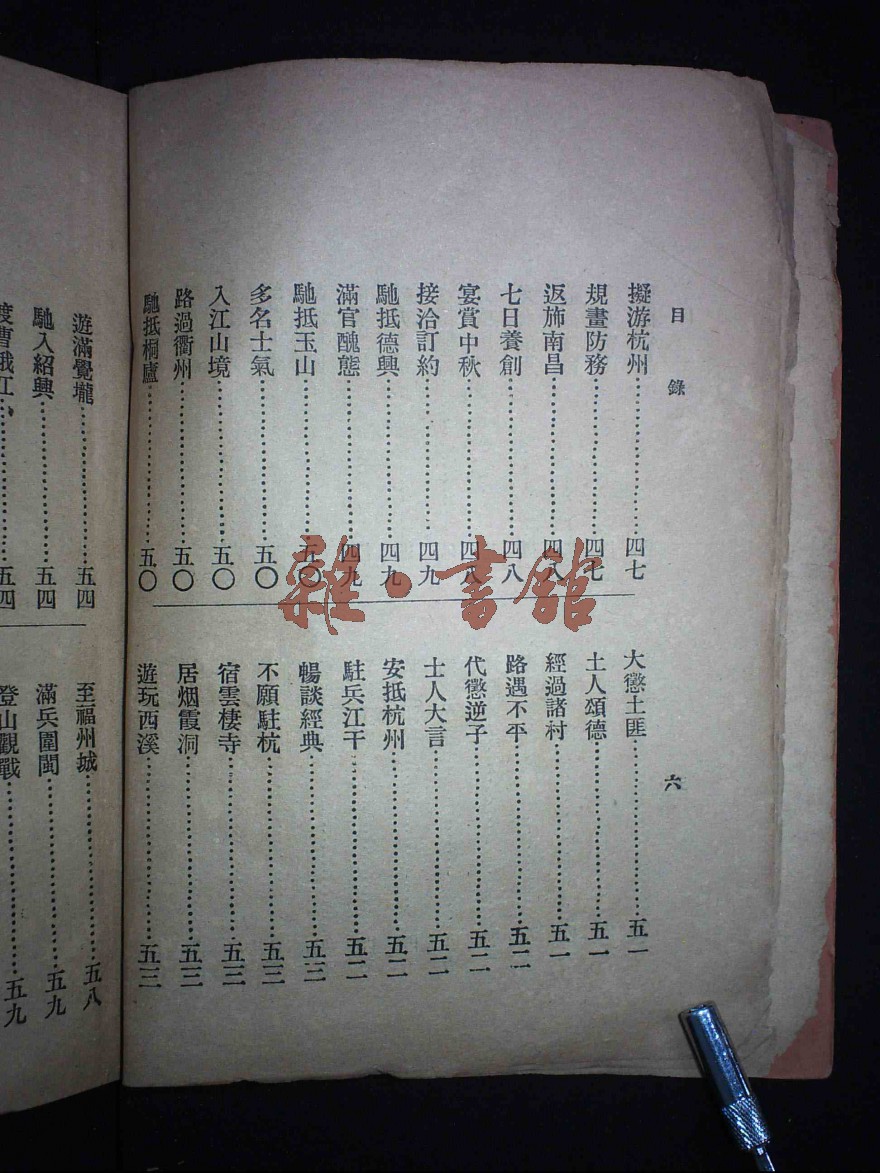 目錄
六
擬游杭州………………四七
規畫防務………………四七
返施南昌………………四八
七日養創………………四八
宴賞中秋………………四八
接洽訂約………………四九
馳抵德興………………四九
滿官醜態………………四九
馳抵玉山………………五〇
多名士氣………………五〇
入江山境………………五〇
路過衢州………………五〇
馳抵桐廬………………五〇
大懲土匪………………五一
土人頌德………………五一
經過諸村………………五一
路遇不平………………五二
代懲逆子………………五二
士人大言………………五二
安抵杭州………………五二
駐兵江干………………五二
暢談經典………………五三
不願駐杭………………五三
宿雲棲寺………………五三
居烟霞洞………………五三
遊玩西溪………………五三
遊滿覺壠………………五四
馳入紹興………………五四
渡曹娥江………………五四
至福州城………………五八
滿兵圍閩………………五九
登山觀戰………………五九
雜·書館